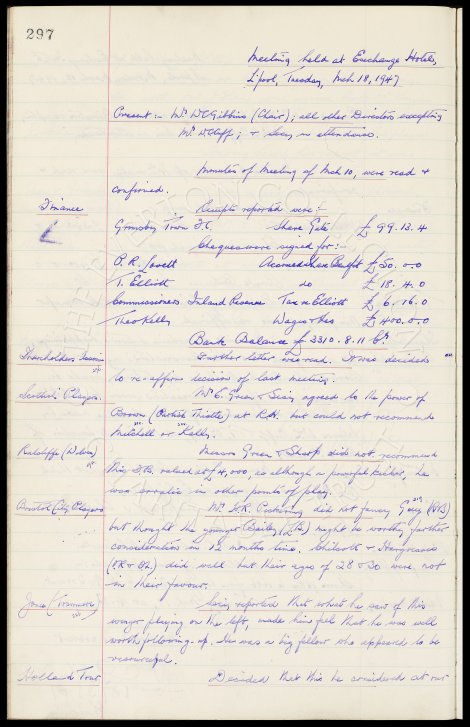 297
Meeting held at Exchange Hotel,
L'pool, Tuesday, Mch. 18, 1947
Present :- Mr. W.C. Gibbins (Chair); all other Directors excepting
Mr. W. Cuff; & Secy. in attendance.
Minutes of Meeting of Mch. 10, were read &
confirmed.
Finance Receipts reported were :-
Grimsby Town F.C. Share Gate £ 99. 13. 4
Cheques were signed for :-
Accrued Share Benefit £ 50. 0. 0
T. Elliott do £ 18. 4. 0
Commissioners Inland Revenue Tax re Elliott £ 6. 16. 0
Theo Kelly Wages & Exs £ 400. 0. 0
Bank Balance £ 3310. 8. 11
Shareholders Further letter was read. It was decided
to re-affirm decision of last meeting.
Scottish Players. Mr. E. Green & Secy. agreed to the power of
Brown (Partick Thistle) at R.H. but could not recommend
Mitchell or Kelly.
Ratcliffe (Wolves) Messrs Green & Sharp did not recommend
this F.B. valued at £4,000, as although a powerful kicker, he
was erratic in other points of play.
Bristol City Players Mr. Pickering did not fancy
but thought the younger Bailey (L.B.) might be worthy further
consideration in 12 months time. Chilcott & Hargreaves
did well but their ages of 28 & 30 were not
in their favour.
Jones (Tranmere) Secy. reported that what he saw of this
winger playing on the left, made him feel that he was well
worth following-up. He was a big fellow who appeared to be
resourceful.
Holland Tour Decided that this be considered at our